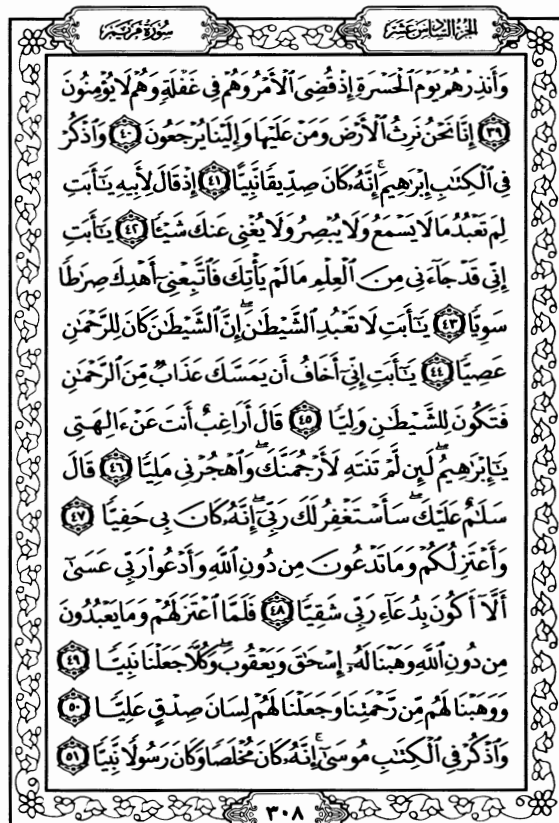 سُورَةُ مَرْيَمَ
الجُزْءُ السَّادِسَ عَشَرَ
وَأَنذِرْهُمْ يَوْمَ ٱلْحَسْرَةِ إِذْ قُضِىَ ٱلْأَمْرُ وَهُمْ فِى غَفْلَةٍ وَهُمْ لَا يُؤْمِنُونَ
٣٩ إِنَّا نَحْنُ نَرِثُ ٱلْأَرْضَ وَمَنْ عَلَيْهَا وَإِلَيْنَا يُرْجَعُونَ ٤٠ وَٱذْكُرْ
فِى ٱلْكِتَـٰبِ إِبْرَٰهِيمَ ۚ إِنَّهُۥ كَانَ صِدِّيقًا نَّبِيًّا ٤١ إِذْ قَالَ لِأَبِيهِ يَـٰٓأَبَتِ
لِمَ تَعْبُدُ مَا لَا يَسْمَعُ وَلَا يُبْصِرُ وَلَا يُغْنِى عَنكَ شَيْـًٔا ٤٢ يَـٰٓأَبَتِ
إِنِّى قَدْ جَآءَنِى مِنَ ٱلْعِلْمِ مَا لَمْ يَأْتِكَ فَٱتَّبِعْنِىٓ أَهْدِكَ صِرَٰطًا
سَوِيًّا ٤٣ يَـٰٓأَبَتِ لَا تَعْبُدِ ٱلشَّيْطَـٰنَ ۖ إِنَّ ٱلشَّيْطَـٰنَ كَانَ لِلرَّحْمَـٰنِ
عَصِيًّا ٤٤ يَـٰٓأَبَتِ إِنِّىٓ أَخَافُ أَن يَمَسَّكَ عَذَابٌ مِّنَ ٱلرَّحْمَـٰنِ
فَتَكُونَ لِلشَّيْطَـٰنِ وَلِيًّا ٤٥ قَالَ أَرَاغِبٌ أَنتَ عَنْ ءَالِهَتِى
يَـٰٓإِبْرَٰهِيمُ ۖ لَئِن لَّمْ تَنتَهِ لَأَرْجُمَنَّكَ ۖ وَٱهْجُرْنِى مَلِيًّا ٤٦ قَالَ
سَلَـٰمٌ عَلَيْكَ ۖ سَأَسْتَغْفِرُ لَكَ رَبِّىٓ ۖ إِنَّهُۥ كَانَ بِى حَفِيًّا ٤٧
وَأَعْتَزِلُكُمْ وَمَا تَدْعُونَ مِن دُونِ ٱللَّهِ وَأَدْعُوا۟ رَبِّى عَسَىٰٓ
أَلَّآ أَكُونَ بِدُعَآءِ رَبِّى شَقِيًّا ٤٨ فَلَمَّا ٱعْتَزَلَهُمْ وَمَا يَعْبُدُونَ
مِن دُونِ ٱللَّهِ وَهَبْنَا لَهُۥٓ إِسْحَـٰقَ وَيَعْقُوبَ ۖ وَكُلًّا جَعَلْنَا نَبِيًّا ٤٩
وَوَهَبْنَا لَهُم مِّن رَّحْمَتِنَا وَجَعَلْنَا لَهُمْ لِسَانَ صِدْقٍ عَلِيًّا ٥٠
وَٱذْكُرْ فِى ٱلْكِتَـٰبِ مُوسَىٰٓ ۚ إِنَّهُۥ كَانَ مُخْلَصًا وَكَانَ رَسُولًا نَّبِيًّا ٥١
٣٠٨